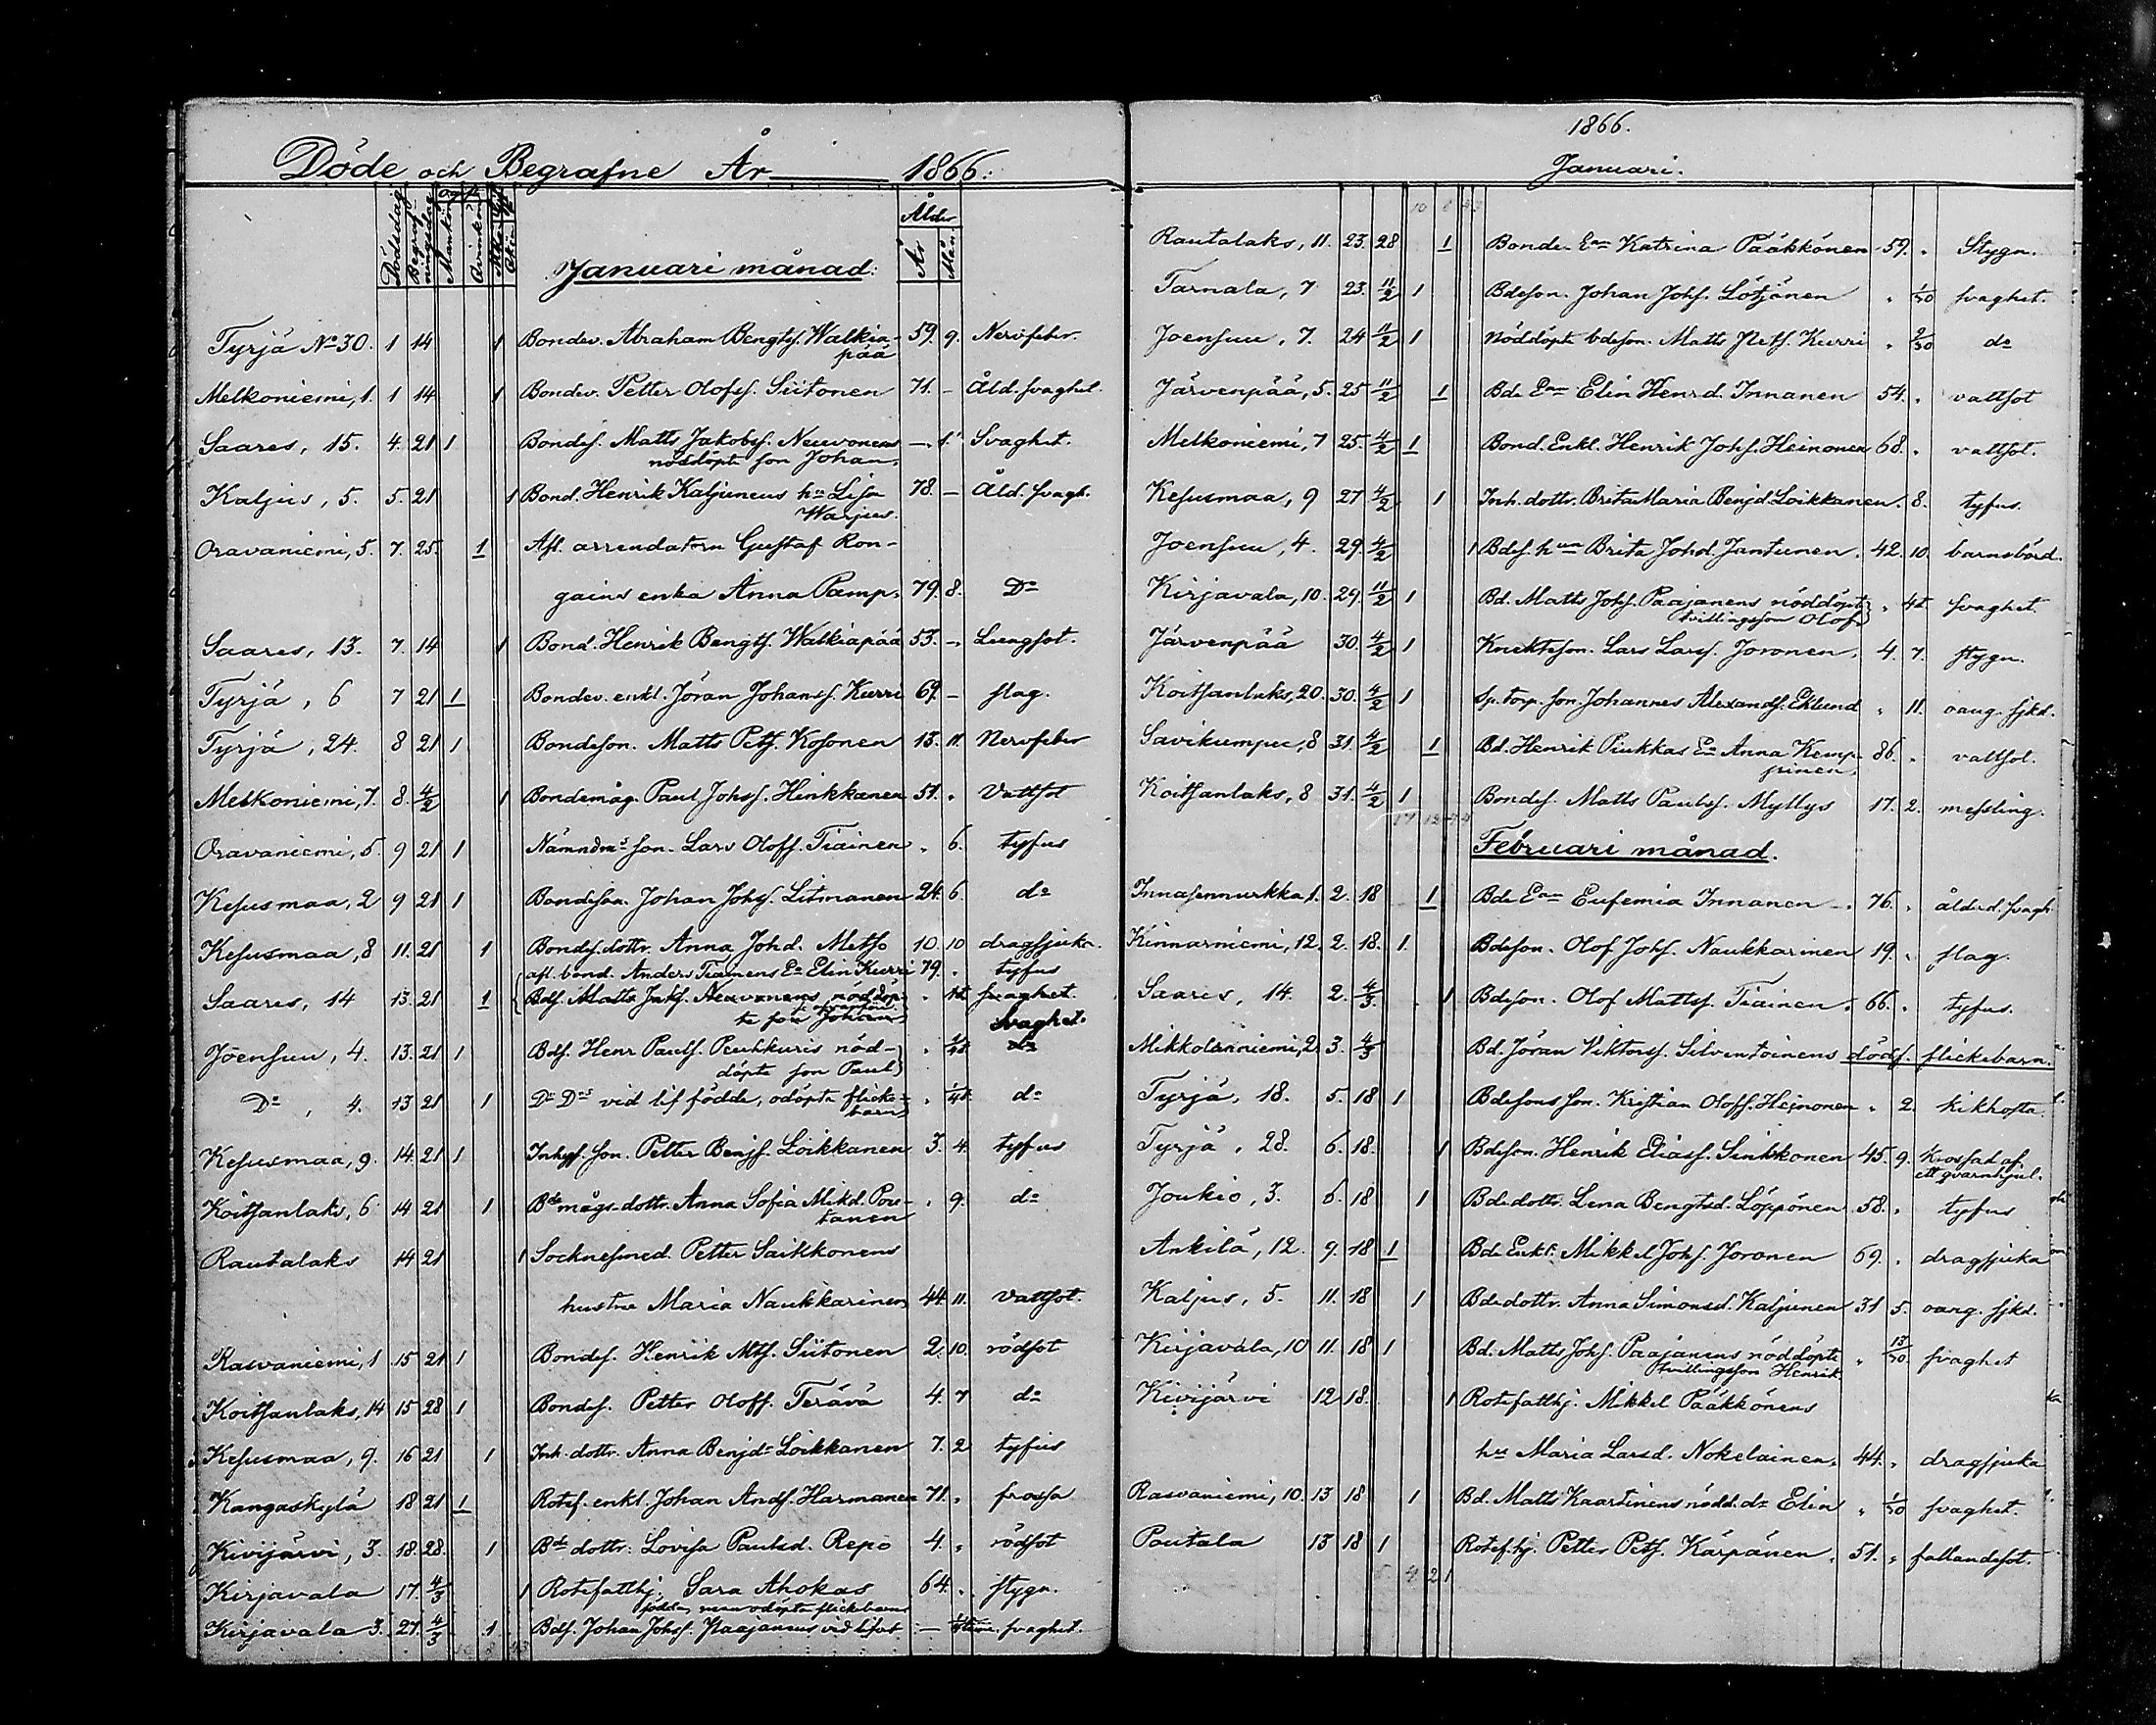 Döde och Begrafne År 1866.
Dödsdag
Begrafningsdag
Ogift
Mankön
Qvinkön
Gift
Ålder
År Mån.
Januari månad:
Tyrjä No 30. 1 14 1 Bondev. Abraham Bengtsf. Walkia- 59. 9. Nervfeber.
pää
Melkoniemi, 1. 1 14 1 Bondev. Petter Olofsf. Siitonen 71. – Åld. svaghet.
Saares, 15. 4. 21 1 Bondes. Matts Jakobsf. Neuvonens – Svaghet.
nöddöpte son Johan.
Kaljus, 5. 5. 21 1 Bond. Henrik Kaljunens hu Lisa 78. – Åld. svagh.
Warjus.
Oravaniemi, 5. 7. 25. 1 Afl. arrendatorn Gustaf Ron-
gains enka Anna Pamp. 79. 8. Do
Saares, 13. 7. 14 1 Bond. Henrik Bengtsf. Walkiapää 53. –. Lungsot.
Tyrjä, 6 7 21 1 Bondev. enkl. Jöran Johansf. Kurri 69. – slag.
Tyrjä, 24. 8 21 1 Bondeson. Matts Petsf. Kosonen 13. 11. Nervfeber
Melkoniemi, 7. 8. 4/2 1 Bondemåg. Paul Johsf. Hinkkanen 51. " Vattsot
Oravaniemi, 5. 9 21 1 Nämndms son. Lars Olofsf. Tiainen " 6. tyfus
Kesusmaa, 2 9 21 1 Bondeson. Johan Johsf. Litmanen 24. 6. do
Kesusmaa, 8 11. 21 1 Bondes. dottr. Anna Johd. Metso 10. 10 dragsjuka.
afl. bond. Anders Tiainens Ea Elin Kurri 79. " tyfus
Saares, 14 13. 21 1 Bdsf. Matts Jaksf. Neuvonens nöddöp- " svaghet.
te son Johan
Svaghet.
Joensuu, 4. 13. 21 1 Bdsf. Henr Paulsf. Peuhkuris nöd- "
döpte son Paul
Do, 4. 13 21 1 Do Dos vid lif födde, odöpte flicke- " do
barn
Kesusmaa, 9. 14. 21 1 Inhysf. son. Petter Benjsf. Loikkanen 3. 4. tyfus
Koitsanlaks, 6 14 21 1 Bde mågs dottr. Anna Sofia Mikd. Pou- " 9. do
tanen
Rautalaks 14 21 1 Socknesmed. Petter Saikkonens
hustru Maria Naukkarinen 44. 11. Vattsot.
Rasvaniemi, 1 15 21 1 Bondes. Henrik Mtsf. Siitonen 2. 10. rödsot
Koitsanlaks, 14 15 28 1 Bondes. Petter Olofsf. Terävä 4. 7 do
Kesusmaa, 9. 16 21 1 Inh. dottr. Anna Benjd. Loikkanen 7. 2 tyfus
Kangaskylä 18 21 1 Rotef. enkl. Johan Andsf. Harmanen 71. " frossa
Kivijärvi, 3. 18. 28. 1 Bde dottr. Lovisa Paulsd. Repo 4. " rödsot
Kirjavala 17. 4/3 1 Rotefatthj. Sara Ahokas 64. " stygn.
födda, men odöpta flickebarn
Kirjavala 3. 27. 4/3 1 Bdsf. Johan Johsf. Paajanens vid lifvet – svaghet.
1866.
Januari.
10 8 13
Rautalaks, 11. 23. 28 1 Bonde. Ean Katrina Pääkkönen 59. " Stygn.
Tarnala, 7 23. 11/2 1 Bdeson. Johan Johsf. Lötjönen " 1/30 svaghet.
Joensuu, 7. 24 11/2 1 Nöddöpte bdeson. Matts Petsf. Kurri " 2/30 do
Järvenpää, 5. 25 11/2 1 Bde Ean Elin Henrd. Innanen 54. " vattsot
Melkoniemi, 7 25. 4/2 1 Bond. Enkl. Henrik Johsf. Heinonen 68. " vattsot.
Kesusmaa, 9 27 4/2 1 Inh. dottr. Brita Maria Benjd. Loikkanen. 8. tyfus.
Joensuu, 4. 29. 4/2 1 Bdes. hun Brita Johd. Jantunen. 42. 10. barnsbörd.
Kirjavala, 10. 29. 11/2 1 Bd. Matts Johsf. Paajanens nöddöpte " svaghet.
tvillingsson Olof
Järvenpää 30. 4/2 1 Knekteson. Lars Larsf. Joronen. 4. 7. stygn.
Koitsanlaks, 20. 30. 4/2 1 Sp. torp. son. Johannes Alexandsf. Eklund " 11. oang. sjkd.
Savikumpu, 8 31. 4/2 1 Bd. Henrik Piukkas Ea Anna Kemp- 86. " vattsot.
pinen.
Koitsanlaks, 8 31. 4/2 1 Bondes. Matts Paulsf. Myllys 17. 2. messling.
Februari månad.
Innasennurkka 1. 2. 18 1 Bde Ean Eufemia Innanen 76. " ålderd. svagh.
Kinnarniemi, 12. 2. 18. 1. Bdeson. Olof Johsf. Naukkarinen 19. " slag.
Saares, 14. 2. 4/3. 1 Bdeson. Olof Mattsf. Tiainen. 66. " tyfus.
Mikkolanniemi, 2 3. 4/3 Bd. Jöran Viktorsf. Silventoinens dödf. flickebarn.
Tyrjä, 18. 5. 18 1 Bdesons son. Kristian Olofsf. Heinonen " 2. kikhosta.
Tyrjä, 28. 6. 18. 1 Bdeson. Henrik Eliasf. Sinkkonen 45. 9. Krossad af
ett qvarnhjul.
Joukio, 3. 6. 18 1 Bdedottr. Lena Bengtsd. Löppönen 58. " tyfus
Ankilä, 12. 9. 18 1 Bde Enkl. Mikkel Johsf. Joronen 69. " dragsjuka
Kaljus, 5. 11. 18 1 Bdedottr. Anna Simonsd. Kaljunen 31 5. oang. sjkd.
Kirjavala, 10 11. 18 1 Bd. Matts Johsf. Paajanens nöddöpte " 13/30. svaghet
tvillingsson Henrik
Kivijärvi 12 18. 1 Rotefatthj. Mikkel Pääkkönens
hu Maria Larsd. Nokelainen. 44. " dragsjuka
Rasvaniemi, 10. 13 18 1 Bd. Matts Kaartinens nödd. dr Elin " 1/30 svaghet.
Poutala 13 18 1 Rotef.hj. Petter Petsf. Kärpänen. 51. " fallandesot.
4 2 1